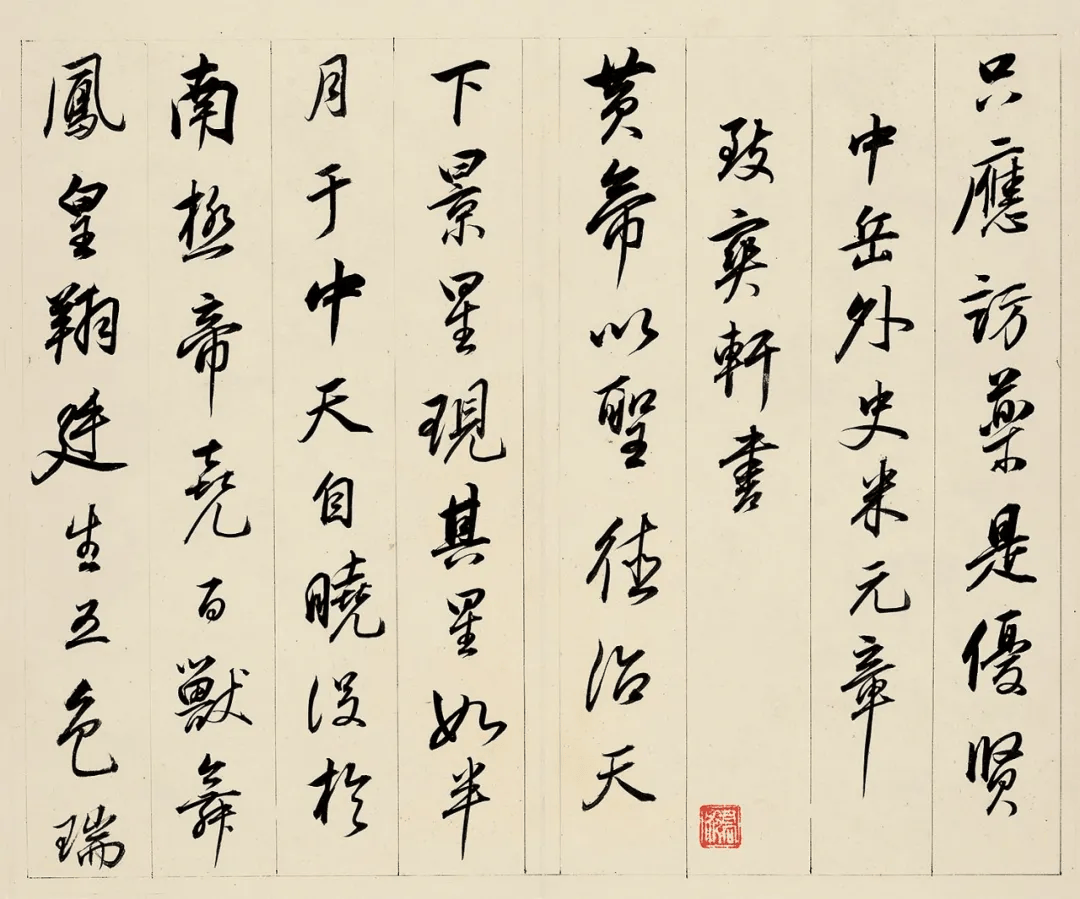 只應訪藥是優賢
中岳外史米元章
致爽軒書
黃帝以聖德治天
下景星現其星如半
月于中天自曉沒於
南極帝堯百獸舞
鳳皇翔廷生五色瑞